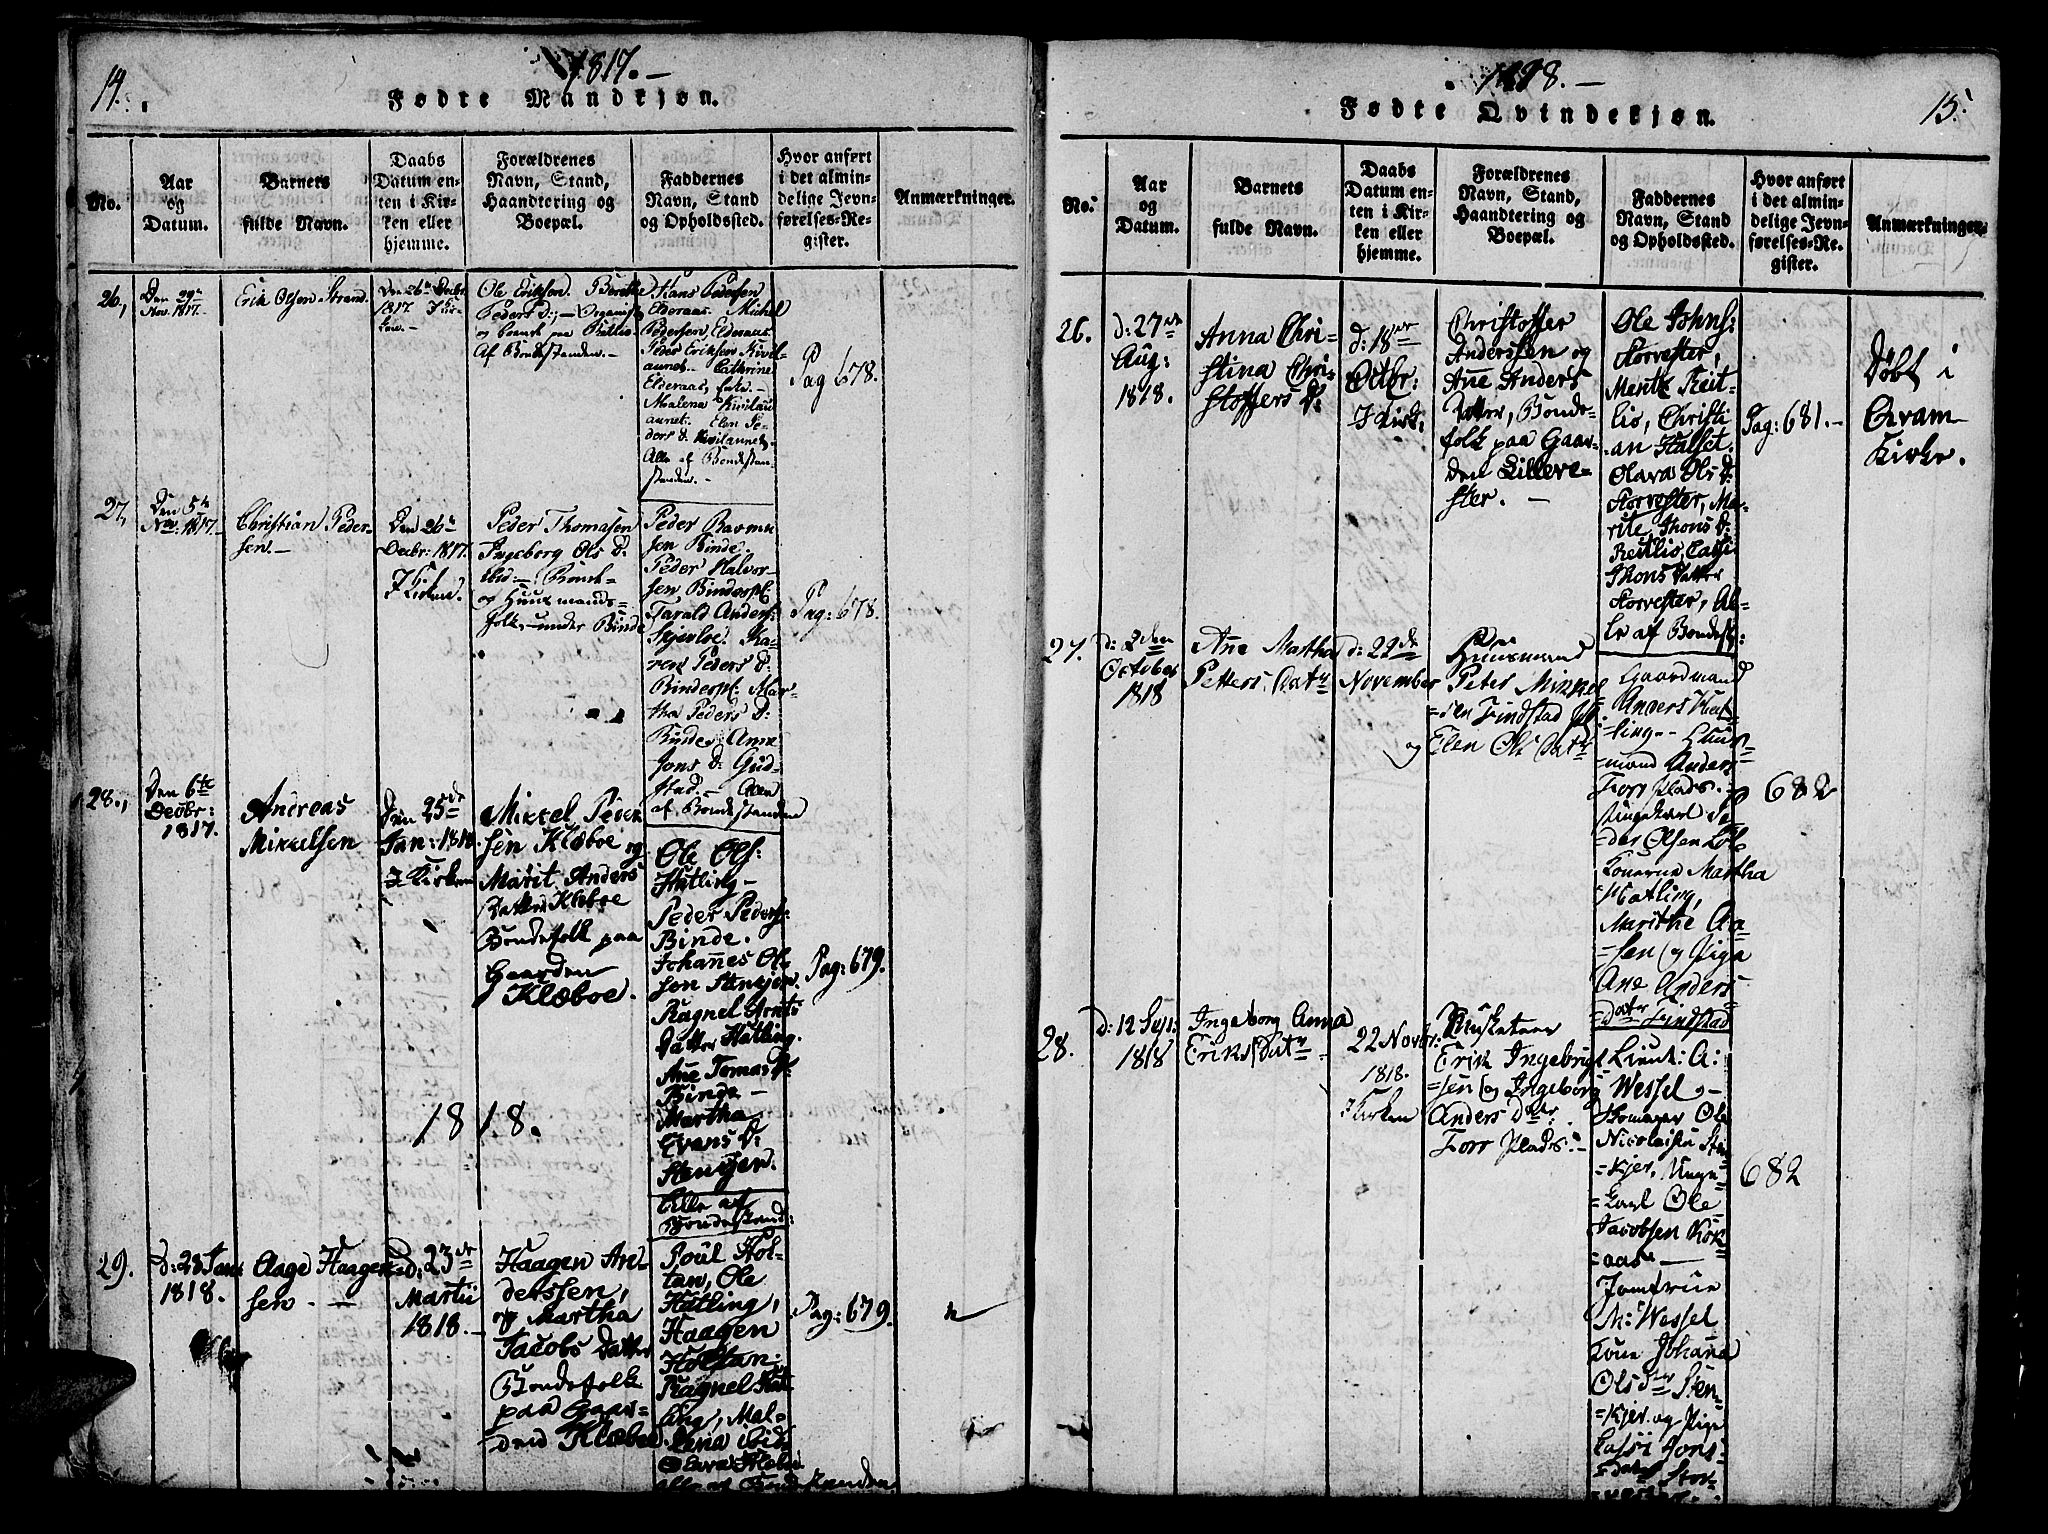 14.
1817. —
Fødte Mandkjøn.
No.
Aar
og
Datum.
Barnets
fulde Navn.
Daabs
Datum en-
ten i Kir-
ken eller
hjemme.
Forældrenes
Navn, Stand,
Haandtering og
Boepæl.
Faddernes
Navn, Stand
og Opholdssted.
Hvor anført
i det almin-
delige Jevn-
førelses-Re-
gister.
Anmærkninger.
26,
Nov. 1817.
Erik Olsen Strand.
Den 26de Decbr
1817. I Kir-
ken. —
Ole Eriksen. Berethe
Peders D:
Af Bondestanden. —
Hans Pedersen
Elderaas. Michel
Pedersen, Elderaas
Peder Eriksen Kivil-
aunet. Cathrine
Elderaas, Enke. —
Malena Kivilau
aunet. Elen Pe-
ders D. Kivilaunet.
Alle af Bondestan-
standen. —
Pag 678.
27,
Den 5te
Nov: 1817. —
Christian Peder-
sen. —
Den 26de
Decbr: 1817.
I Kirken.
Peder Thomasen
Ingeborg Ols D.
og Huusmands-
folk under Binde
Peder Rasmu
sen Binde.
Peder Halvor-
sen Bindespl:
Tarald Anders:
Ma-
ren Peders D:
Bindespl: Mar-
tha Peders D:
Binde. Anna
Jons D: Gud-
stad. — Alle
af Bondestanden
Pag: 678.
28.,
Den 6te
Decbr:
1817.
Andreas
Mikkelsen
Den 25de
Jan: 1818
I Kirken
Mikkel Peder
sen Klæboe og
Marit Anders
Datter Klæboe
Bondefolk paa
Gaarden
Klæboe.
Ole Ols:
Hatling —
Peder Peders:
Binde.
Johannes Ol-
sen Stensjen.
Ragnel Arnts
Datter Hatling.
Ane Tomas D:
Binde —
Martha
Evens D:
Stensjen.
Alle af
Bondestand:
Pag: 679.
1818.
29.
D: 28 Jan:
1818.
Aage Haagen-
sen. —
d. 23de
Martii
1818. —
Haagen An-
derssen,
og Martha
Jacobs Datter
Bondefolk
paa Gaar-
den Klæboe.
Poul Hol-
tan, Ole
Hatling,
Haagen
Holtan:
Ragnel Hat
ling, Mal-
lena ibid:
Olava Klæboe
alle af Bondestanden
Pag: 679.
15.
1818. —
Fødte Qvindekjøn.
No.
Aar
og
Datum.
Barnets
fulde Navn.
Daabs
Datum en-
ten i Kir-
ken eller
hjemme.
Forældrenes
Navn, Stand,
Haandtering og
Boepæl.
Faddernes
Navn, Stand
og Opholdssted.
Hvor anført
i det almin-
delige Jevn-
førelses-Re-
gister.
Anmærkninger.
26.
d: 27de
Aug:
1818.
Anna Chri-
stina Chri-
stoffers D:
d: 18de
Octbr:
I Kirk:
Christoffer
Anderssen og
Ane Anders
Datter, Bonde-
folk paa Gaar-
den Lillere-
ster. —
Ole Johns:
Storvester,
Mentz Reit-
lio, Christi-
an Halset.
Olava Ols D:
Storvester, Ma-
rite Thons D:
Reitlio,
Thons Datter
Storvester, Al-
le af Bondest:
Pag: 681. —
Døbt i
Qvam
Kirke.
27.
d: 2den
October
1818
Ane Martha
Petters Datr
d: 22de
November
Huusmand
Peter Mikkel
=sen Findstad Pl:
og Elen Ols Datr
Gaardmand
Anders Hat-
=ling — Huus=
mand Anders
Forr Plads. —
Ungekarl Pe-
der Olsen
Konerne Martha
Hatling,
Marithe Aa=
=sen og Pige
Ane Anders=
=datr Findstad
682
28.
d: 12 Sept:
1818
Ingeborg Anna
Eriks Datr —
22 Novbr:
1818.
I Kirken
Musketeer
Erik Ingebrigt
=sen og Ingeborg
Anders Dter:
Forr Plads: —
Lieut: A:
Wessel, —
Ole
Nicolaisen Sten-
=kjer, Unge=
=karl Ole
Jacobsen
=aas —
Jomfrue
M: Wessel
Kone Johana
Ols Dter Sten=
=kjer og Pige
Jons=
=datr Stor=
682